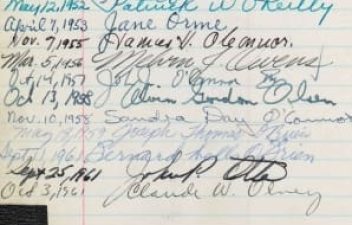 May 12, 1952 Patrick W. O'Reilly
April 7, 1953 Jane Orme
Nov. 7, 1955 Frances V. O'Connor.
Mar. 5, 1956 Melvin J. Owens
Oct 14, 1957 John J. O'Connor
Oct 13, 1958 Alvin Gordon Olsen
Nov. 10, 1958 Sandra Day O'Connor
May 19, 1959 Joseph Thomas
Sept 1961 Bernard O'Brien
Sept 25, 1961 John P.
Oct 3, 1961 Claude W. Olney